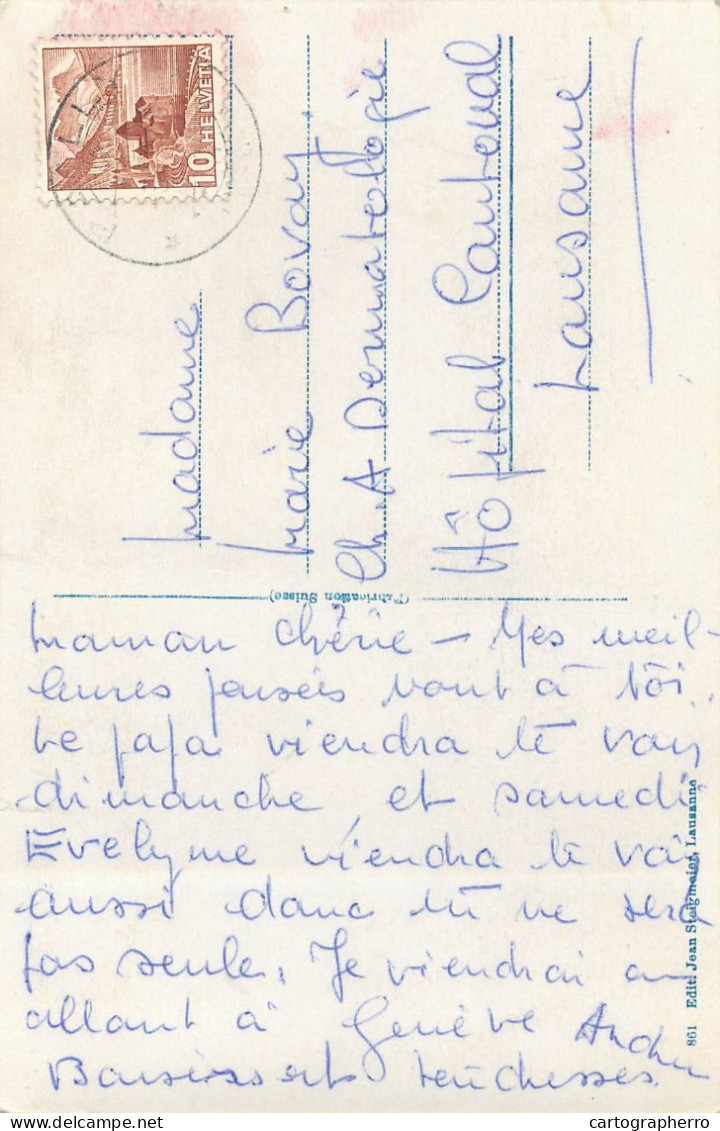 HELVETIA
10
Madame
Marie Bovay
Ch. A Dermatologie
Hôpital Cantonal
Lausanne
(Fabrication Suisse)
Maman chérie — Mes meil-
leures pensées vont à toi.
Le papa viendra te voir
dimanche, et samedi
Evelyne viendra te voir
aussi donc tu ne sera
pas seule. Je viendrai en
allant à Genève
Baisers et tendresses
861 Edit. Jean Steigmeier, Lausanne
cartographerro